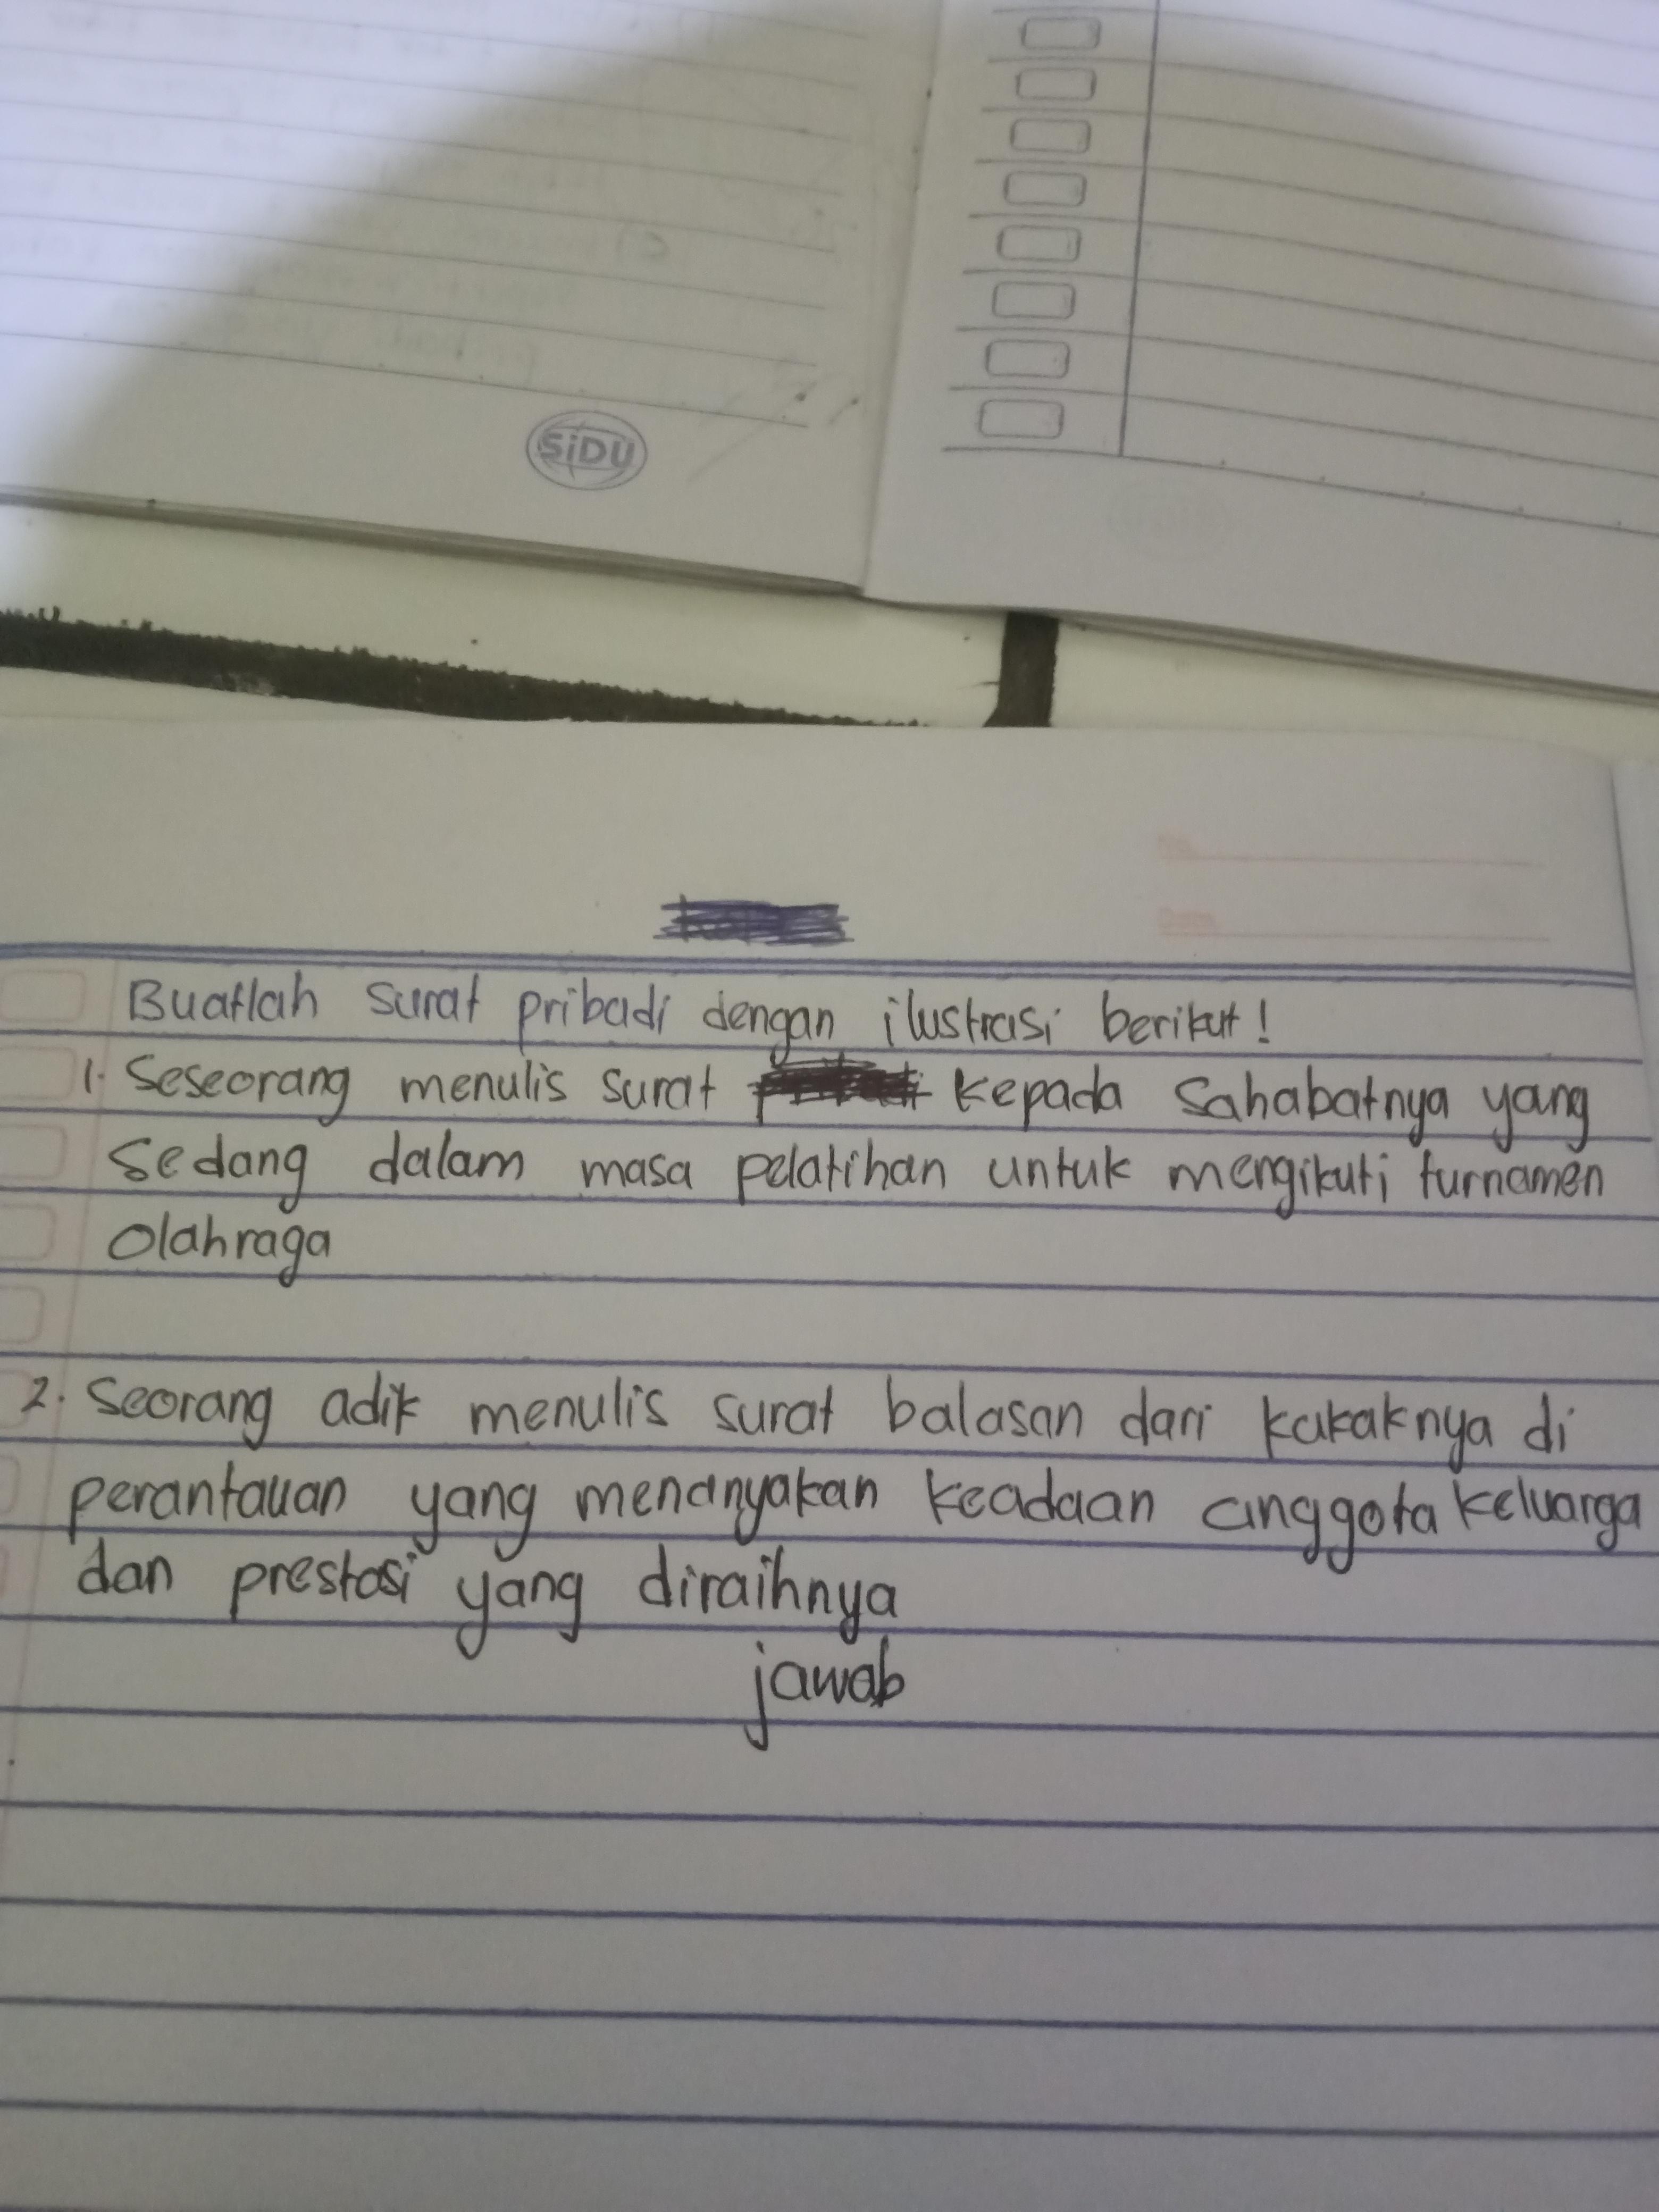 SiDU
Buatlah surat pribadi dengan ilustrasi berikut!
1. Seseorang menulis surat kepada Sahabatnya yang
Sedang dalam masa pelatihan untuk mengikuti turnamen
Olahraga
2. Seorang adik menulis surat balasan dari kakaknya di
perantauan yang menanyakan keadaan anggota keluarga
dan prestasi yang diraihnya
jawab